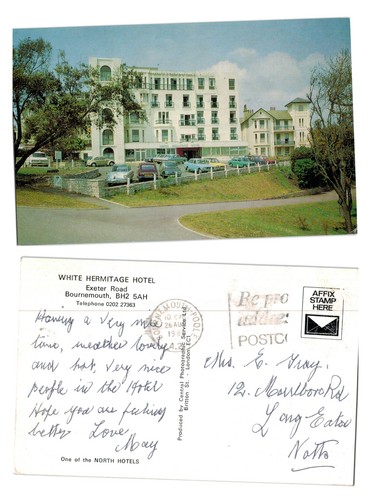 WHITE HERMITAGE HOTEL
Exeter Road
Bournemouth, BH2 5AH
Telephone 0202 27363
Having a very nice
time, weather lovely
and hot, very nice
people in the Hotel
Hope you are feeling
better Love
May
One of the NORTH HOTELS
Produced by Central Photographic Service Ltd.
Britton St. - London EC1
BOURNEMOUTH POOLE
26 AUG
POSTC
AFFIX
STAMP
HERE
Mrs. E. Gray.
12. Marlboro Rd
Long Eaton
Notts